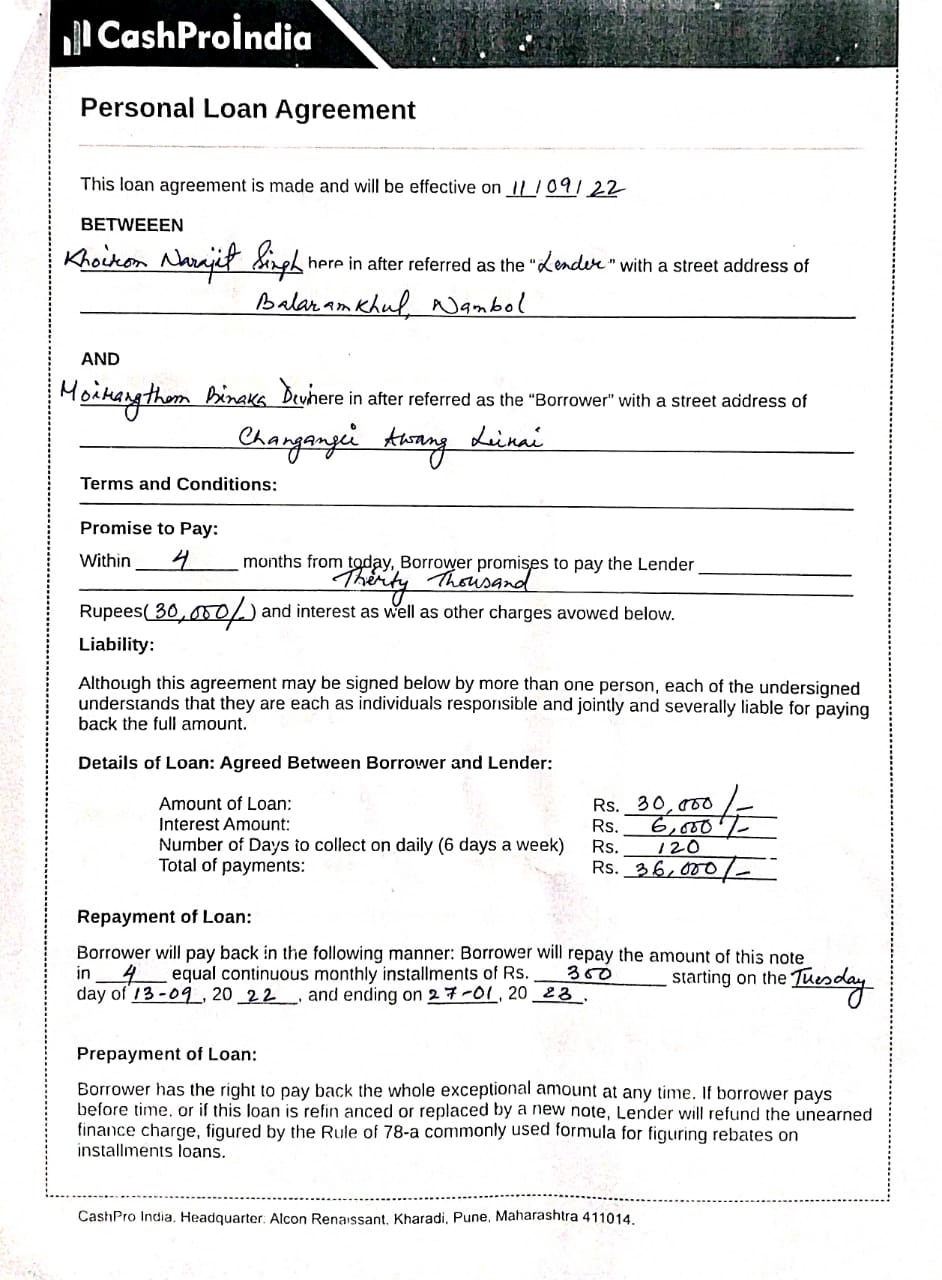 CashProİndia
Personal Loan Agreement
This loan agreement is made and will be effective on 11/09/22
BETWEEEN
Khoirom Narajit Singh here in after referred as the "Lender" with a street address of
Balaramkhul, Nambol
AND
Moirangthem Binaka Devi here in after referred as the "Borrower" with a street address of
Changangei Awang Leikai
Terms and Conditions:
Promise to Pay:
Within 4 months from today, Borrower promises to pay the Lender
Therty Thousand
Rupees(30,000/-) and interest as well as other charges avowed below.
Liability:
Although this agreement may be signed below by more than one person, each of the undersigned
understands that they are each as individuals responsible and jointly and severally liable for paying
back the full amount.
Details of Loan: Agreed Between Borrower and Lender:
Amount of Loan: Rs. 30,000/-
Interest Amount: Rs. 6,000/-
Number of Days to collect on daily (6 days a week) Rs. 120
Total of payments: Rs. 36,000/-
Repayment of Loan:
Borrower will pay back in the following manner: Borrower will repay the amount of this note
in 4 equal continuous monthly installments of Rs. 300 starting on the Tuesday
day of 13-09, 20 22, and ending on 27-01, 20 23.
Prepayment of Loan:
Borrower has the right to pay back the whole exceptional amount at any time. If borrower pays
before time, or if this loan is refin anced or replaced by a new note, Lender will refund the unearned
finance charge, figured by the Rule of 78-a commonly used formula for figuring rebates on
installments loans.
CashPro India, Headquarter: Alcon Renaissant, Kharadi, Pune, Maharashtra 411014.